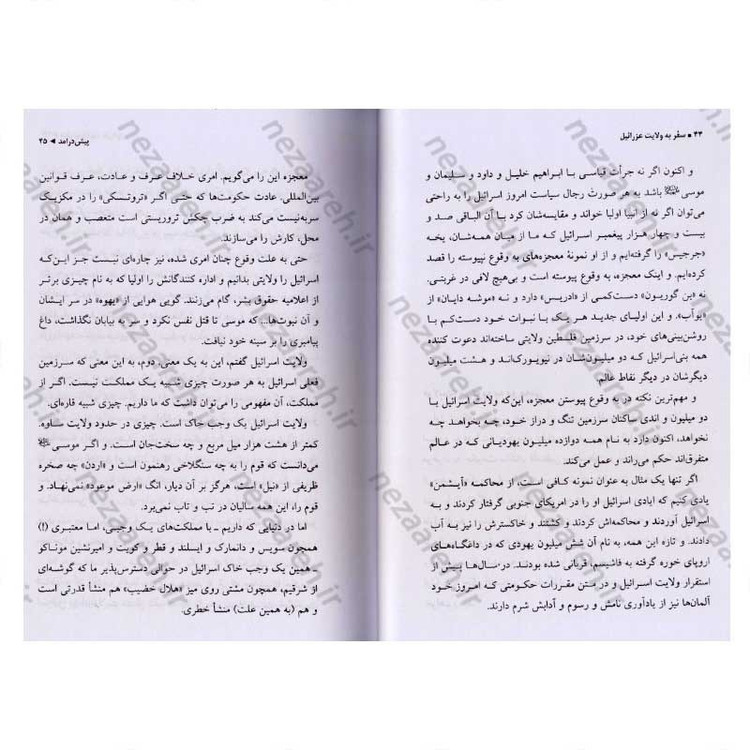 ۲۴ ■ سفر به ولایت عزرائیل
و اکنون اگر نه جرأت قیاسی با ابراهیم خلیل و داود و سلیمان و
موسی باشد به هر صورت رجال سیاست امروز اسرائیل را به راحتی
می‌توان اگر نه از انبیا اولیا خواند و مقایسه‌شان کرد با آن الباقی صد و
بیست و چهار هزار پیغمبر اسرائیل که ما از میان همه‌شان، یخه
«جرجیس» را گرفته‌ایم و از او نمونهٔ معجزه‌های به وقوع نپیوسته را قصد
کرده‌ایم. و اینک معجزه، به وقوع پیوسته است و بی‌هیچ لافی در غربتی.
نه «بن گوریون» دست‌کمی از «ادریس» دارد و نه «موشه دایان» از
«یوآب». و این اولیای جدید هر یک با نبوات خود دست‌کم با
روشن‌بینی‌های خود، در سرزمین فلسطین ولایتی ساخته‌اند دعوت کننده
همه بنی‌اسرائیل که دو میلیون‌شان در نیویورک‌اند و هشت میلیون
دیگرشان در دیگر نقاط عالم.
و مهم‌ترین نکته در به وقوع پیوستن معجزه، این‌که ولایت اسرائیل با
دو میلیون و اندی ساکنان سرزمین تنگ و دراز خود، چه بخواهد چه
نخواهد، اکنون دارد به نام همه دوازده میلیون یهودیانی که در عالم
متفرق‌اند حکم می‌راند و عمل می‌کند.
اگر تنها یک مثال به عنوان نمونه کافی است، از محاکمه «آیشمن»
یادی کنیم که ایادی اسرائیل او را در امریکای جنوبی گرفتار کردند و به
اسرائیل آوردند و محاکمه‌اش کردند و کشتند و خاکسترش را نیز به آب
دادند. و تازه این همه، به نام آن شش میلیون یهودی که در داغگاه‌های
اروپای خوره گرفته به فاشیسم، قربانی شده بودند. در سال‌ها پیش از
استقرار ولایت اسرائیل و در متن مقررات حکومتی که امروز خود
آلمان‌ها نیز از یادآوری نامش و رسوم و آدابش شرم دارند.
پیش‌درآمد ◄ ۲۵
معجزه این را می‌گویم. امری خلاف عرف و عادت، عرف قوانین
بین‌المللی. عادت حکومت‌ها که حتی اگر «تروتسکی» را در مکزیک
سربه‌نیست می‌کند به ضرب چکش تروریستی است متعصب و همان در
محل، کارش را می‌سازند.
حتی به علت وقوع چنان امری شده، نیز چاره‌ای نیست جز این‌که
اسرائیل را ولایتی بدانیم و اداره کنندگانش را اولیا که به نام چیزی برتر
از اعلامیه حقوق بشر، گام می‌زنند. گویی هوایی از «یهوه» در سر ایشان
و آن نبوت‌ها... که موسی تا قتل نفس نکرد و سر به بیابان نگذاشت، داغ
پیامبری را بر سینه خود نیافت.
ولایت اسرائیل گفتم، این به یک معنی. دوم، به این معنی که سرزمین
فعلی اسرائیل به هر صورت چیزی شبیه یک مملکت نیست. اگر از
مملکت، آن مفهومی را می‌توان داشت که ما داریم. چیزی شبیه قاره‌ای.
ولایت اسرائیل یک وجب خاک است. چیزی در حدود ولایت ساوه.
کمتر از هشت هزار میل مربع و چه سخت‌جان است. و اگر موسی
می‌دانست که قوم را به چه سنگلاخی رهنمون است و «اردن» چه صخره
ظریفی از «نیل» است، هرگز بر آن دیار، انگ «ارض موعود» نمی‌نهاد. و
قوم را، این همه سالیان در تب و تاب نمی‌برد.
اما در دنیایی که داریم ـ با مملکت‌های یک وجبی، اما معتبری (!)
همچون سویس و دانمارک و ایسلند و قطر و کویت و امیرنشین موناکو
ـ همین یک وجب خاک اسرائیل در حوالی دسترس‌پذیر ما که گوشه‌ای
از شرقیم، همچون مشتی روی میز «هلال خضیب» هم منشأ قدرتی است
و هم (به همین علت) منشأ خطری.
nezaareh.ir